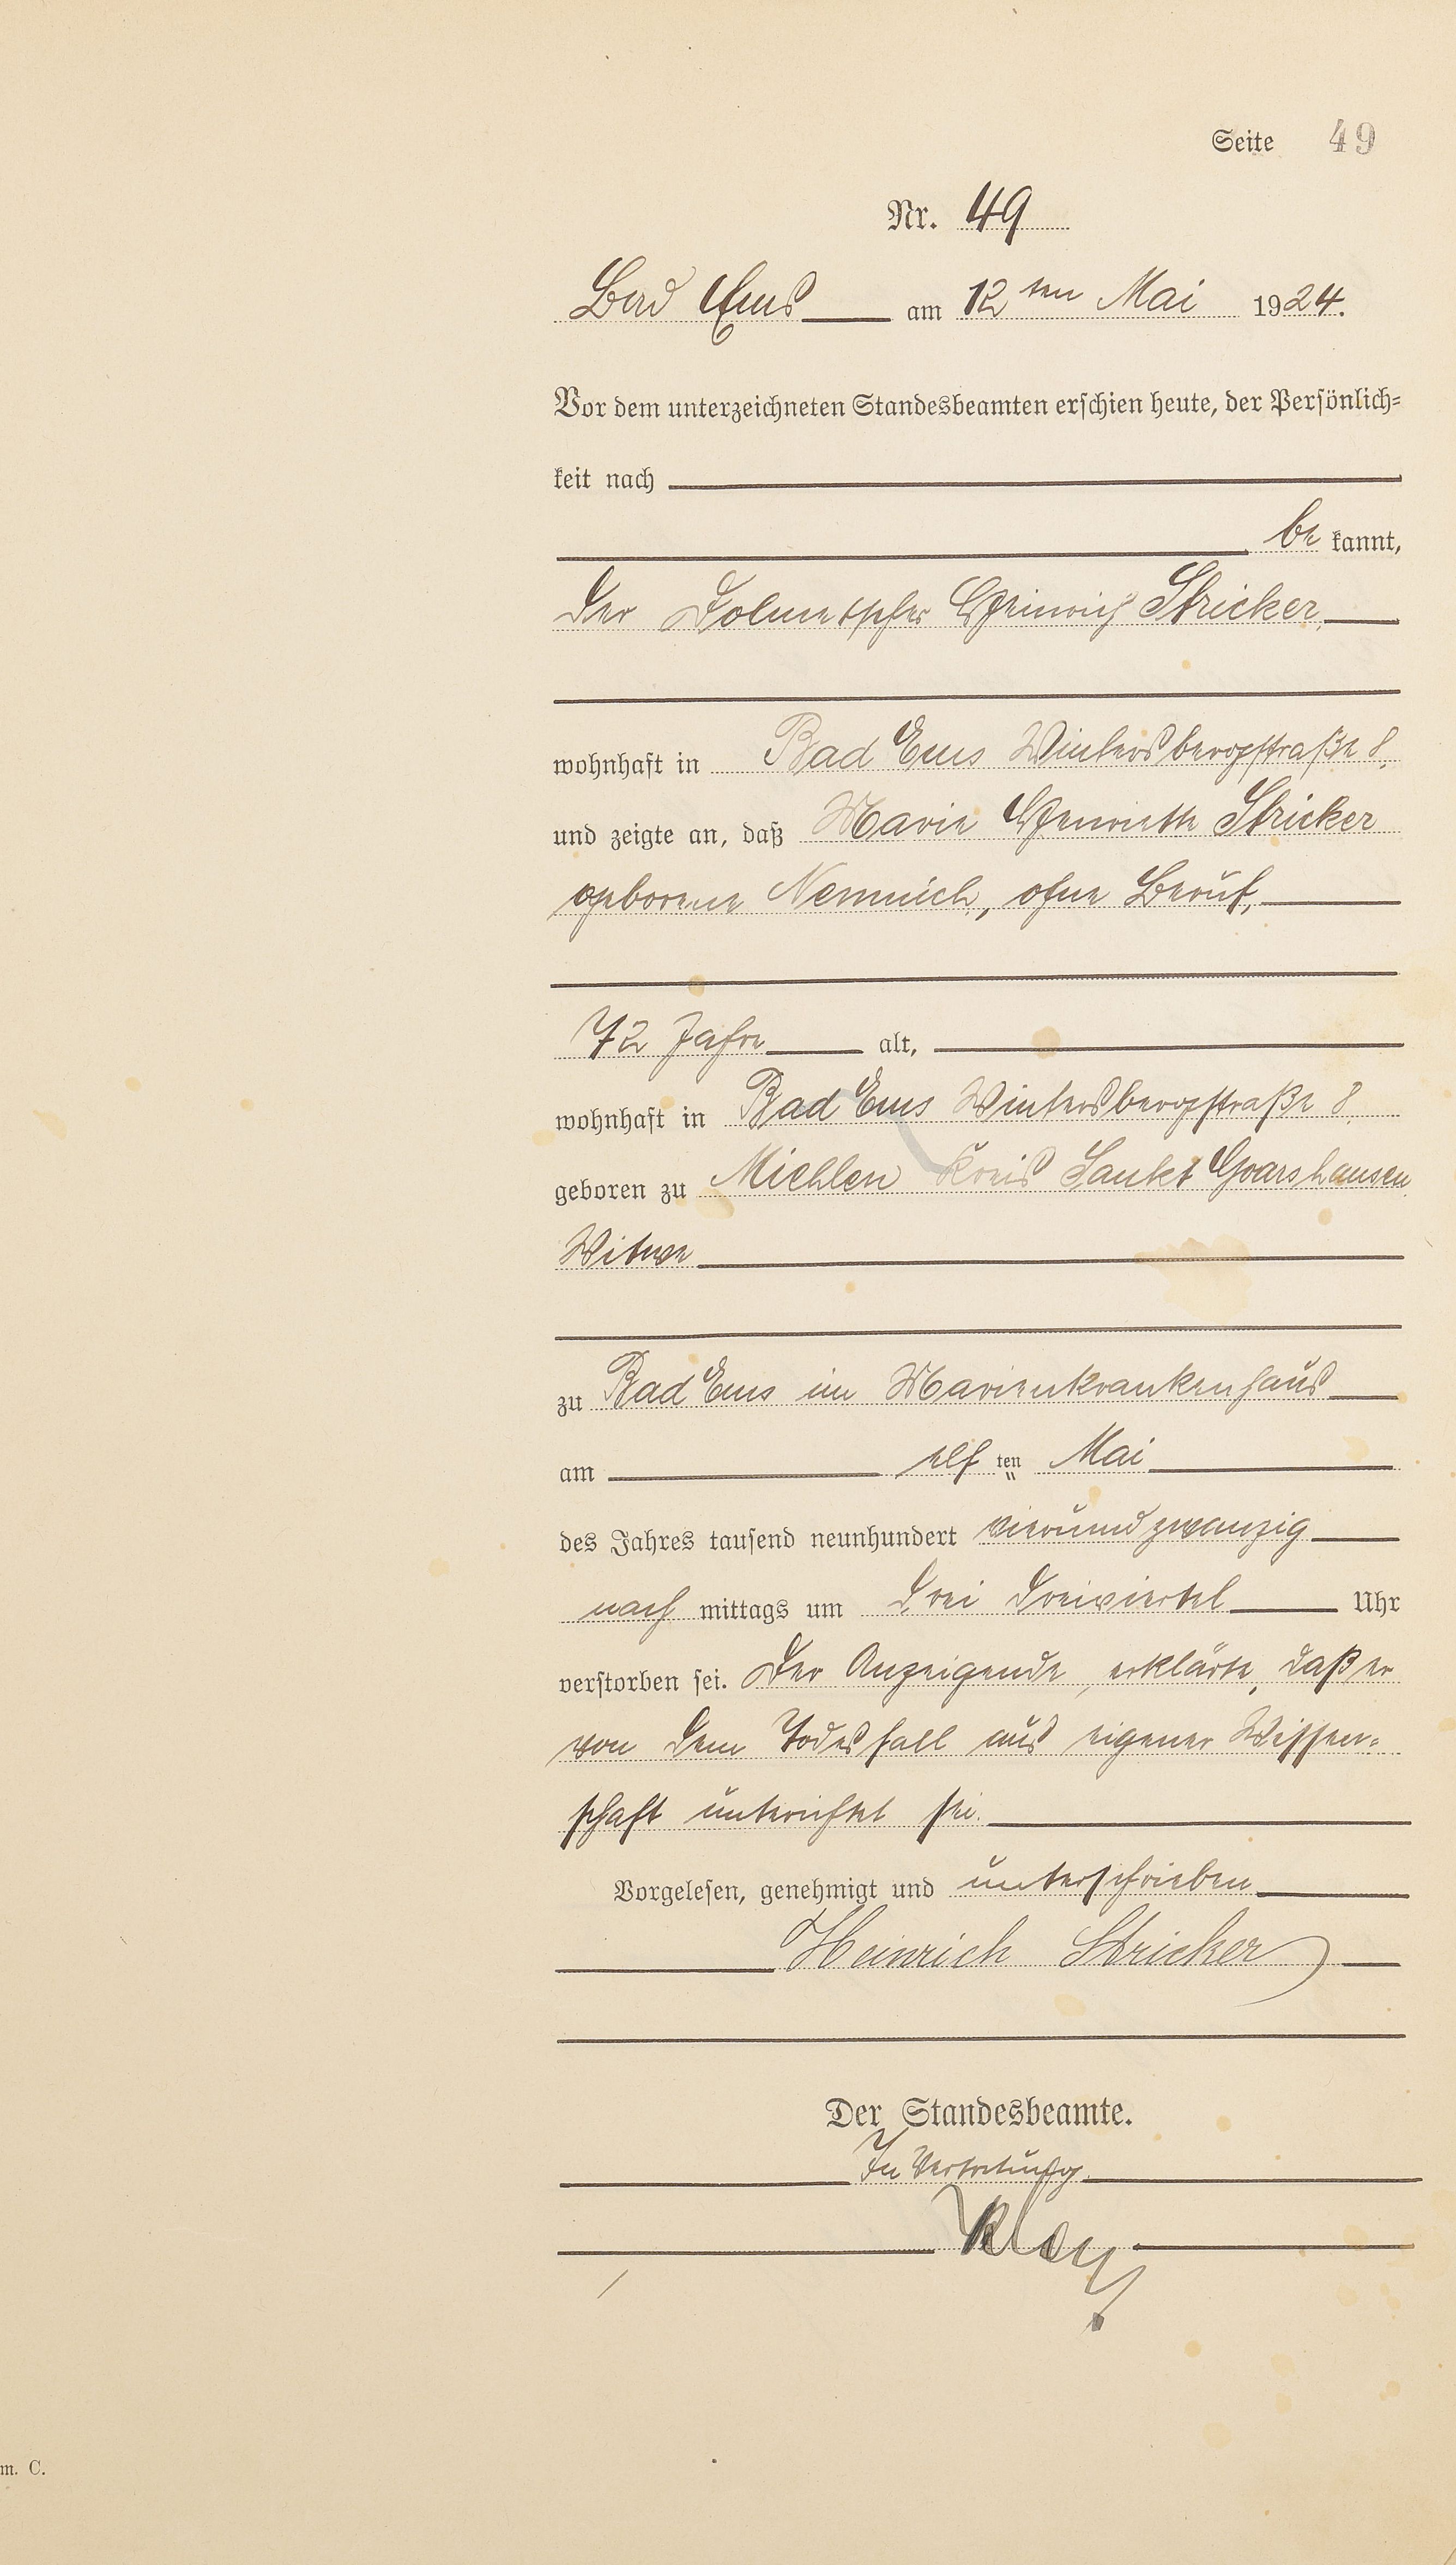 Seite 49
Nr. 49
Bad Ems am 12ten Mai 1924.
Vor dem unterzeichneten Standesbeamten erschien heute, der Persönlich-
keit nach
be kannt,
der Dolmetscher Heinrich Stricker,
wohnhaft in Bad Ems Wintersbergstraße 8,
und zeigte an, daß Marie Henriette Stricker
geborene Nemnich, ohne Beruf,
72 Jahre alt,
wohnhaft in Bad Ems Wintersbergstraße 8,
geboren zu Miehlen Kreis Sankt Goarshausen
Witwe
zu Bad Ems im Marienkrankenhaus
am elf ten Mai
des Jahres tausend neunhundert vierundzwanzig
nach mittags um drei dreiviertel Uhr
verstorben sei. Der Anzeigende, erklärte, daß er
von dem Todesfall aus eigener Wissen-
schaft unterichtet sei.
Vorgelesen, genehmigt und unterschrieben
Heinrich Stricker
Der Standesbeamte.
In Vertretung.
m. C.